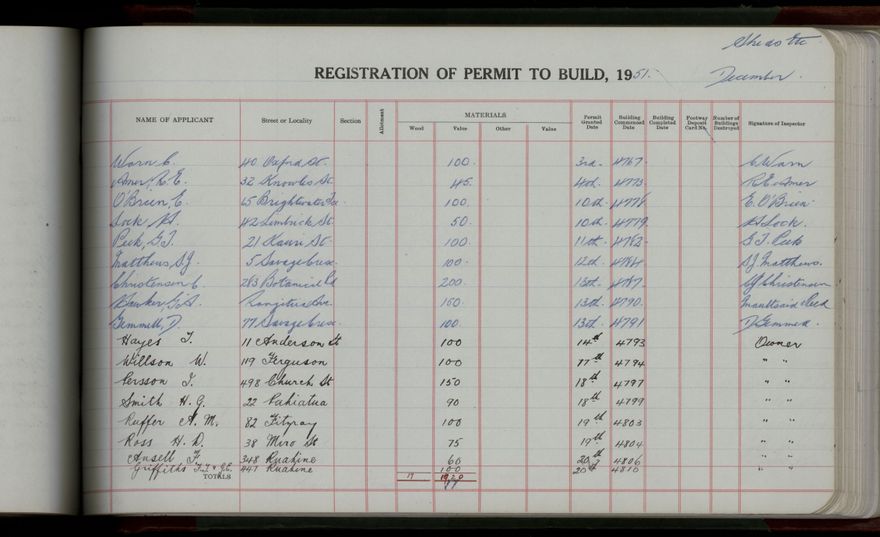 Sheds etc
REGISTRATION OF PERMIT TO BUILD, 1951.
December.
NAME OF APPLICANT Street or Locality Section Allotment MATERIALS Permit Granted Date Building Commenced Date Building Completed Date Footway Deposit Card No. Number of Buildings Destroyed Signature of Inspector
Wood Value Other Value
Warn C. 40 Oxford St. 100. 3rd. 4767. C Warn
Amer, R.E. 32 Knowles St. 45. 4th. 4773. R.E. Amer
O'Brien, E. 65 Brightwater Tce. 100. 10th. 4778 E. O'Brien.
Lock, 42 Limbrick St. 50. 10th. 4779. Lock.
Peek, G.T. 21 Kauri St. 100. 11th. 4782. G.T. Peek
Matthews, S.J. 5 Savage Cres. 100. 12th. 4784. S.J Matthews.
Christensen C. 283 Botanical Rd 200. 13th. 4787. Christensen
G.A. Rangitea Ave. 150. 13th. 4790.
Gemmell, D. 77 Savage Cres. 100. 13th. 4791 D. Gemmell.
Hayes T. 11 Anderson St 100 14th 4793 Owner
Willson W. 119 Ferguson 100 17th 4794 " "
Persson T. 498 Church St 150 18th 4797 " "
Smith H. G. 22 Pahiatua 90 18th 4799 " "
Ruffer A. M. 82 Fitzroy 100 19th 4803 " "
Ross H. D. 38 Miro St 75 19th 4804 " "
Ansell F. 348 Ruahine 60 20th 4806 " "
Griffiths T.T & G.E. 447 Ruahine 100 20th 4810 " "
TOTALS 17
17